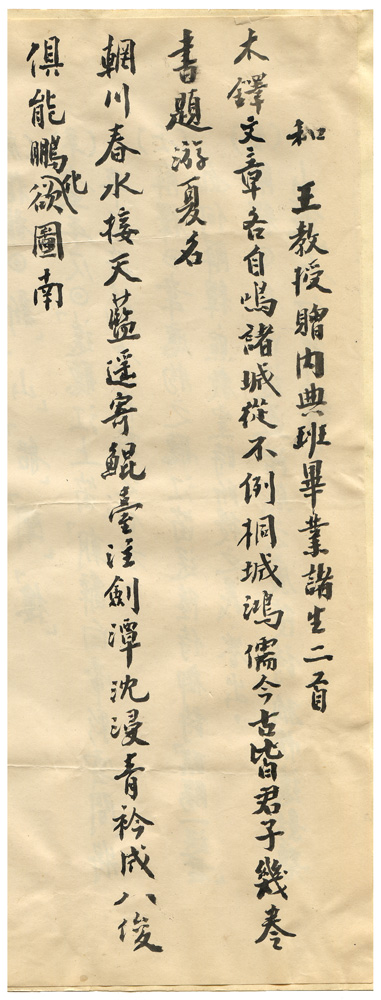 和　王教授贈內典班畢業諸生二首
木鐸文章各自鳴諸城從不例桐城鴻儒今古皆君子幾卷
書題游夏名
輞川春水接天藍遥寄鯤臺注劍潭沈浸青衿成八俊
俱能鵬化欲圖南